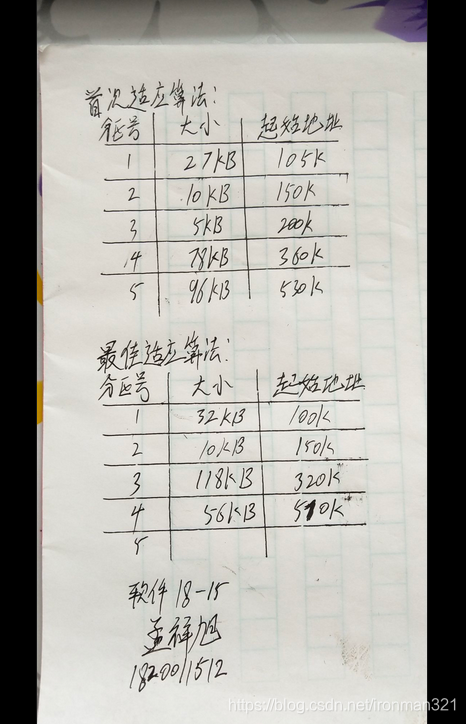 首次适应算法:
分区号 大小 起始地址
1 27KB 105K
2 10KB 150K
3 5KB 200K
4 78KB 360K
5 96KB 530K
最佳适应算法:
分区号 大小 起始地址
1 32KB 100K
2 10KB 150K
3 118KB 320K
4 56KB 570K
5
软件18-15
孟祥旭
1820011512
https://blog.csdn.net/ironman321